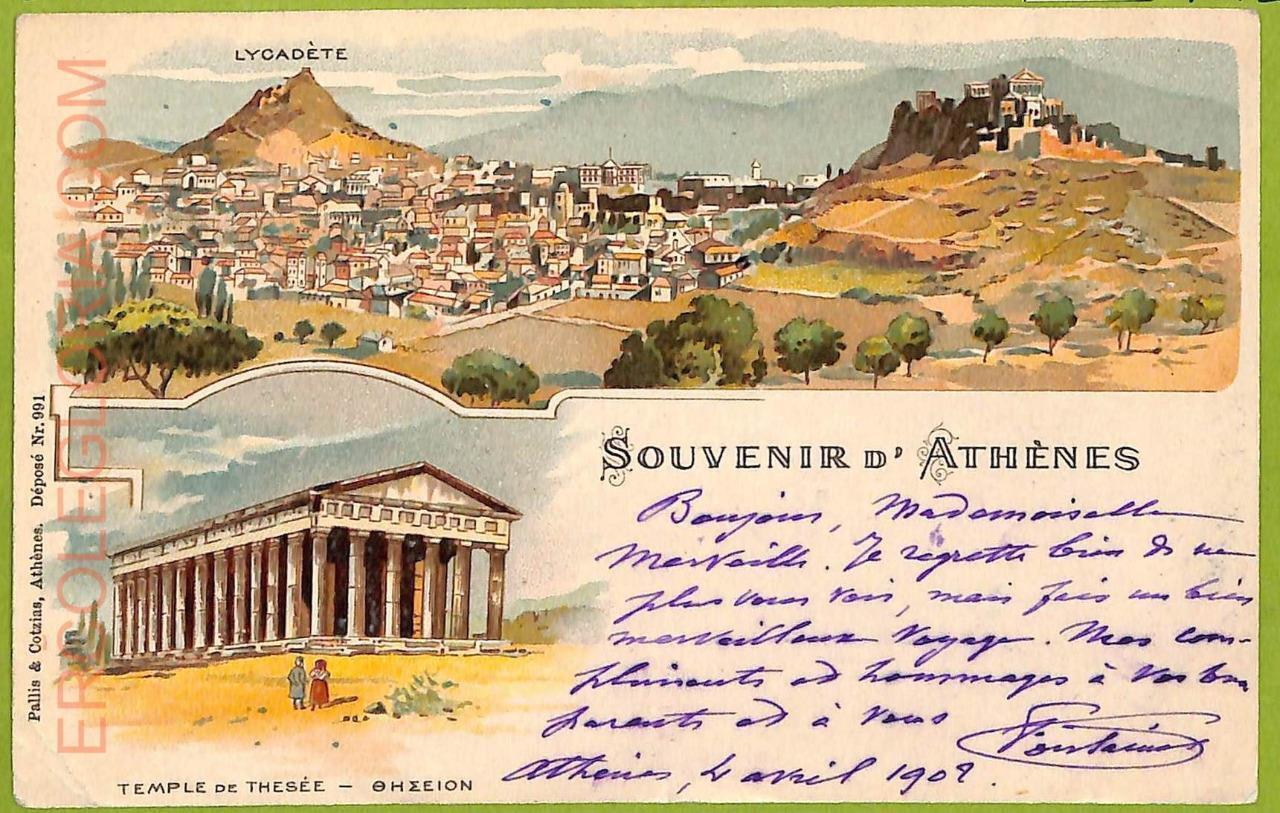 LYCADÈTE
SOUVENIR D' ATHÈNES
Bonjour, Mademoiselle
Merveille. Je regrette bien de ne
plus vous voir, mais fais un bien
merveilleux voyage. Mes com-
pliments et hommages à vos bons
parents et à vous
Fontaine
Athènes, 4 avril 1902.
TEMPLE DE THESÉE – ΘΗΣΕΙΟΝ
Pallis & Cotzias, Athènes. Déposé Nr. 991
ERCOLEGLORIA.COM